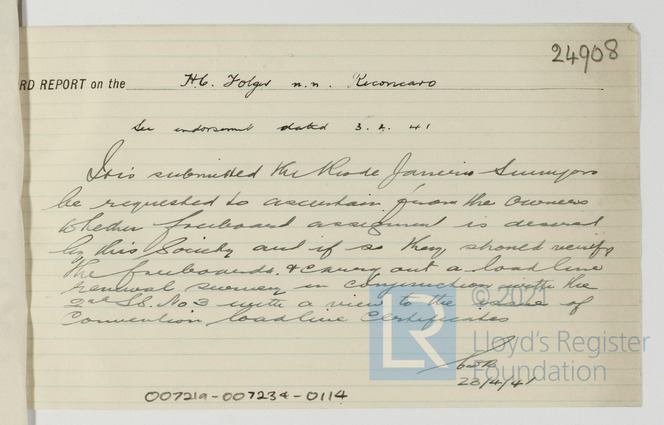 24908
RD REPORT on the H.C. Folger n.n. Reconcavo
See endorsement dated 3.2.41
It is submitted the Rio de Janeiro Surveyors
be requested to ascertain from the owners
whether freeboard assignment is desired
by this Society and if so they should verify
the freeboards & carry out a load line
renewal survey in conjunction with the
2nd S.S. No 3 with a view to the issue of
Convention load line certificates
23/4/41
007219-007234-0114
© 2021
LR
Lloyd's Register
Foundation